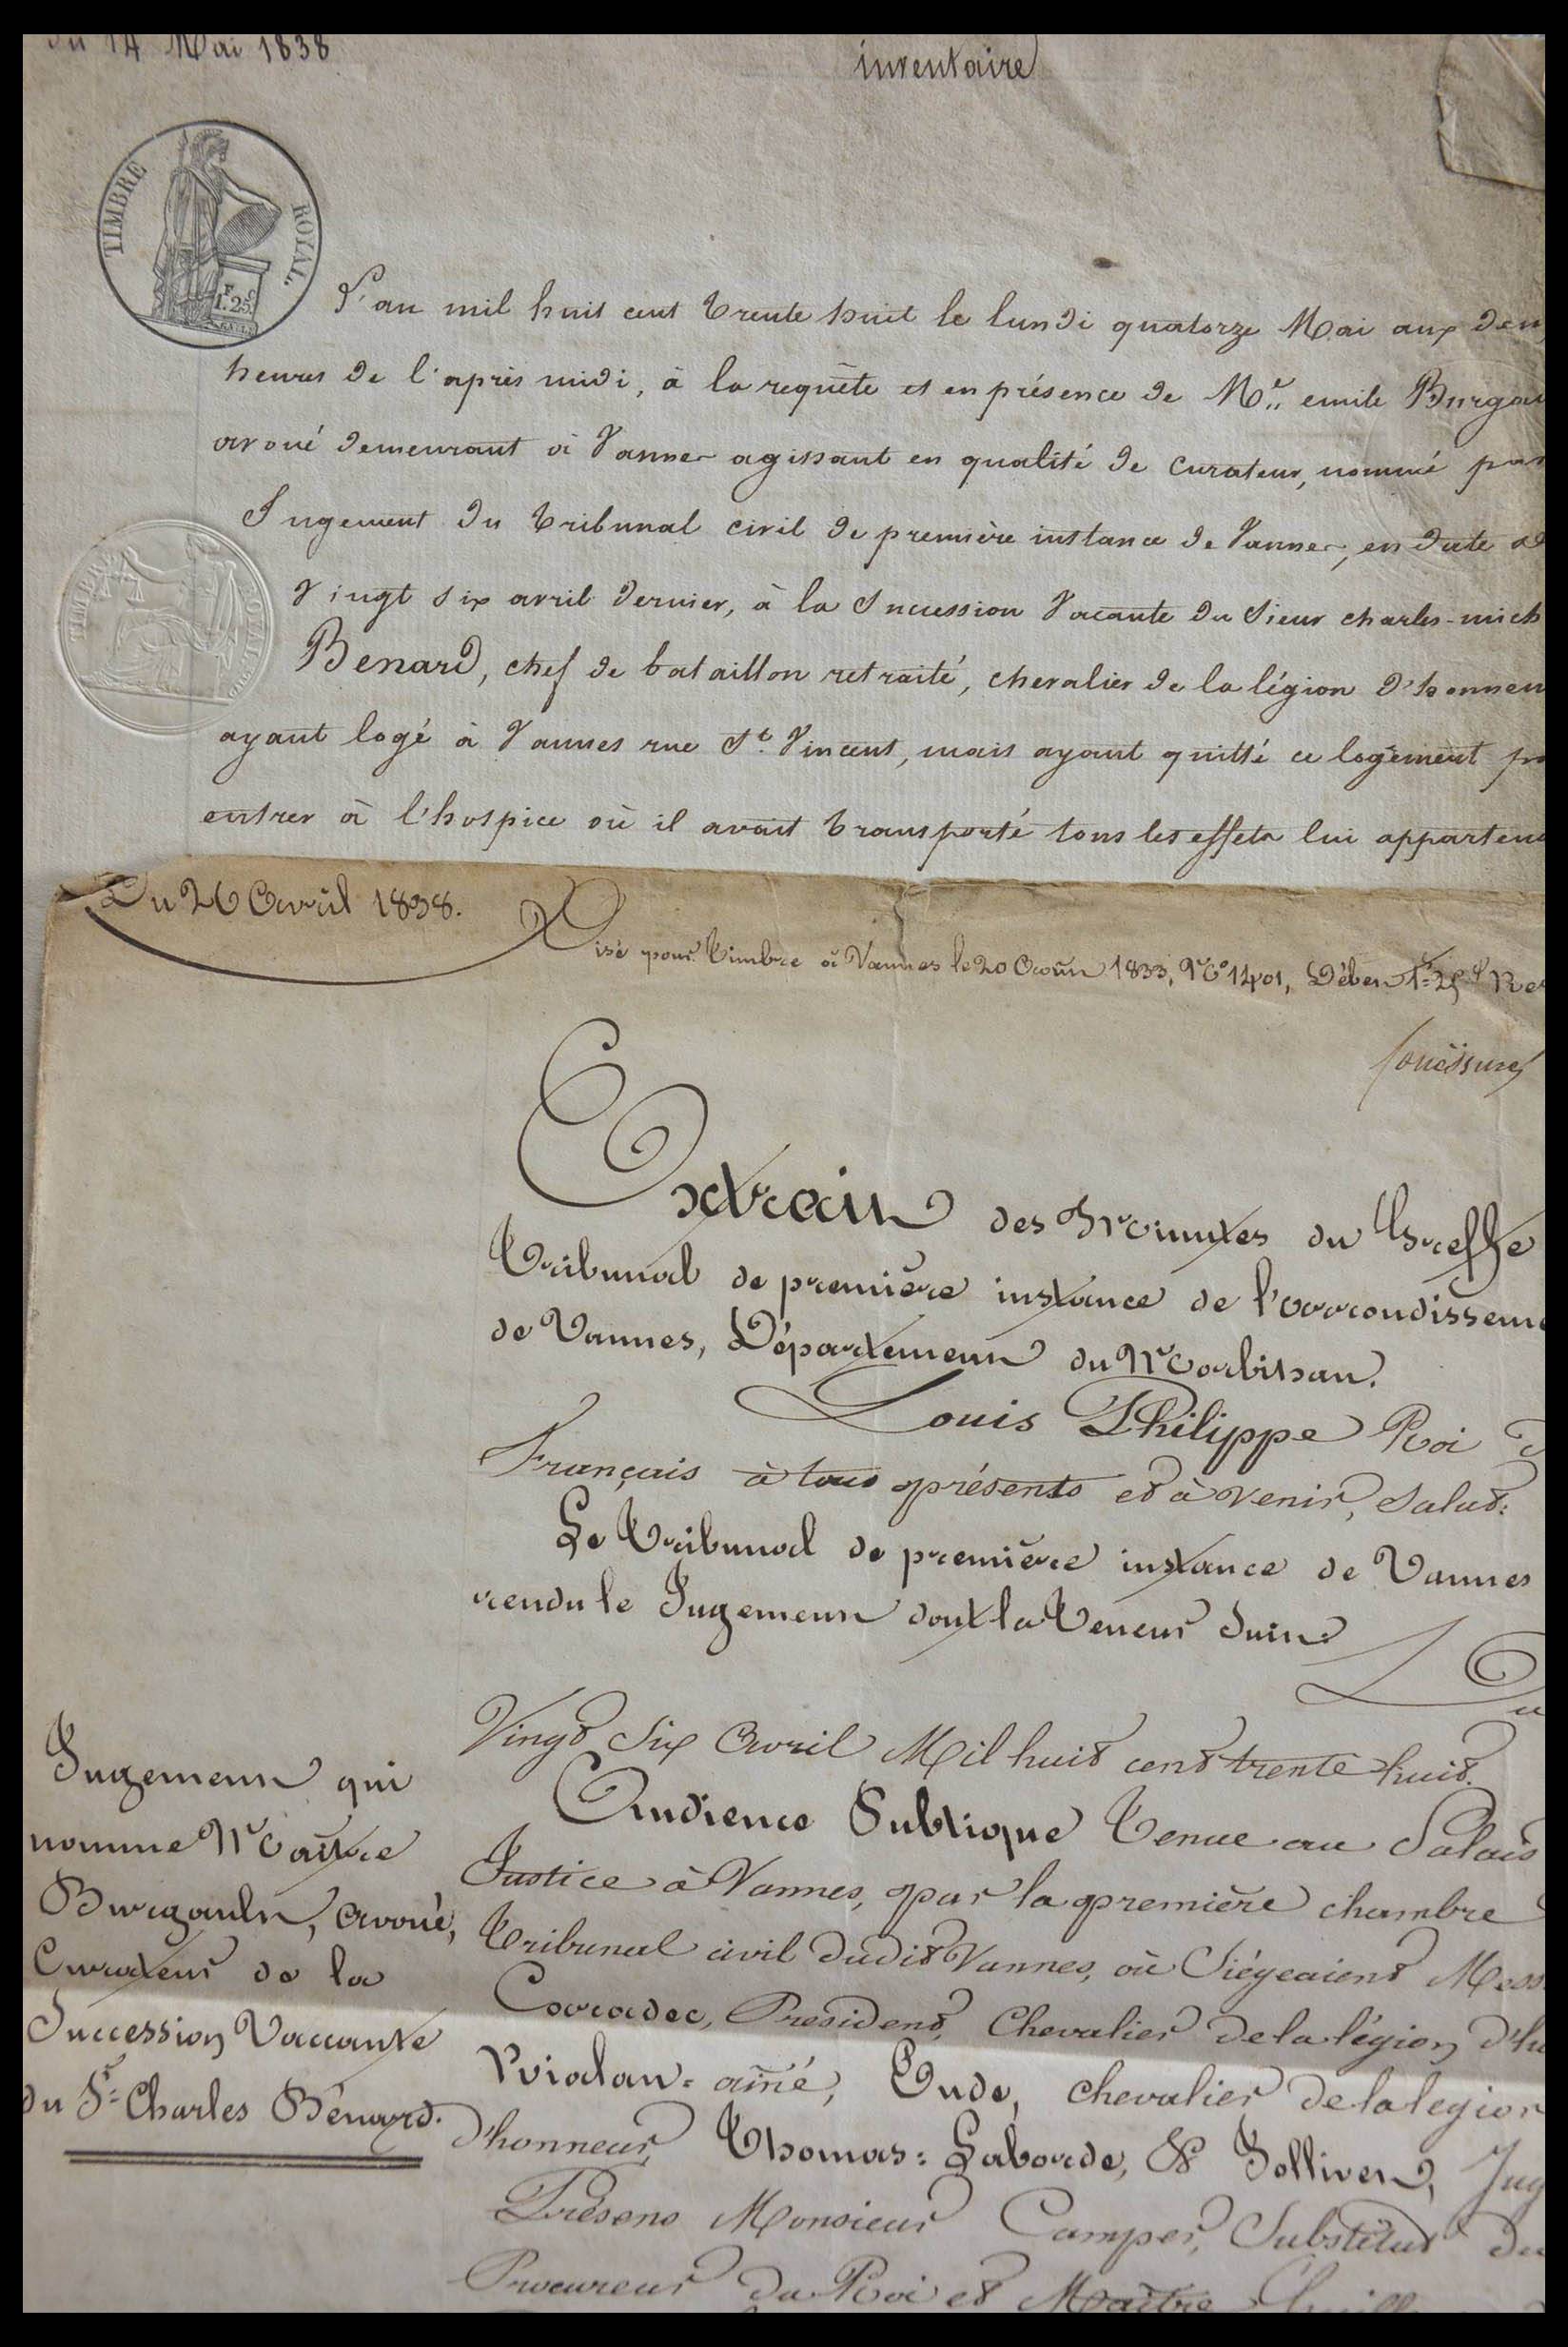 du 14 Mai 1838
inventaire
TIMBRE ROYAL
1F. 25c
L'an mil huit cent trente huit le lundi quatorze Mai aux deu
heures de l'après midi, à la requête et en présence de Mr. emile Burgau
avoué demeurant à Vannes agissant en qualité de Curateur, nommé par
Jugement du tribunal civil de première instance de Vannes, en date d
Vingt six avril dernier, à la Succession Vacante du Sieur charles-mich
Benard, chef de bataillon retraité, chevalier de la légion d'honneu
ayant logé à Vannes rue St. Vincent, mais ayant quitté ce logement po
entrer à l'hospice où il avait transporté tous les effets lui appartena
Du 26 Avril 1838.
Visé pour timbre à Vannes le 20 1833, No 1401, Déb
Extrait des Minutes du Greffe
Tribunal de première instance de l'arrondisseme
de Vannes, Département du Morbihan.
Louis Philippe Roi d
Français à tous présents et à venir, Salut:
Le Tribunal de première instance de Vannes
rendu le Jugement dont la teneur suit:
Du
Vingt Six Avril Mil huit cent trente huit.
Audience Publique tenue au Palais
Justice à Vannes, par la première chambre
Tribunal civil dudit Vannes, où Siégeaient Mess
Caradec, Président, Chevalier de la légion d'ho
Vialan aîné, Eude, chevalier de la legion
d'honneur, Thomas=Laborde, & Jollivet, Jug
Présens Monsieur Camper, Substitut du
Procureur du Roi et Maître
Jugement qui
nomme Maître
Burgault, avoué,
Curateur de la
Succession Vaccante
du Sr. Charles Bénard.